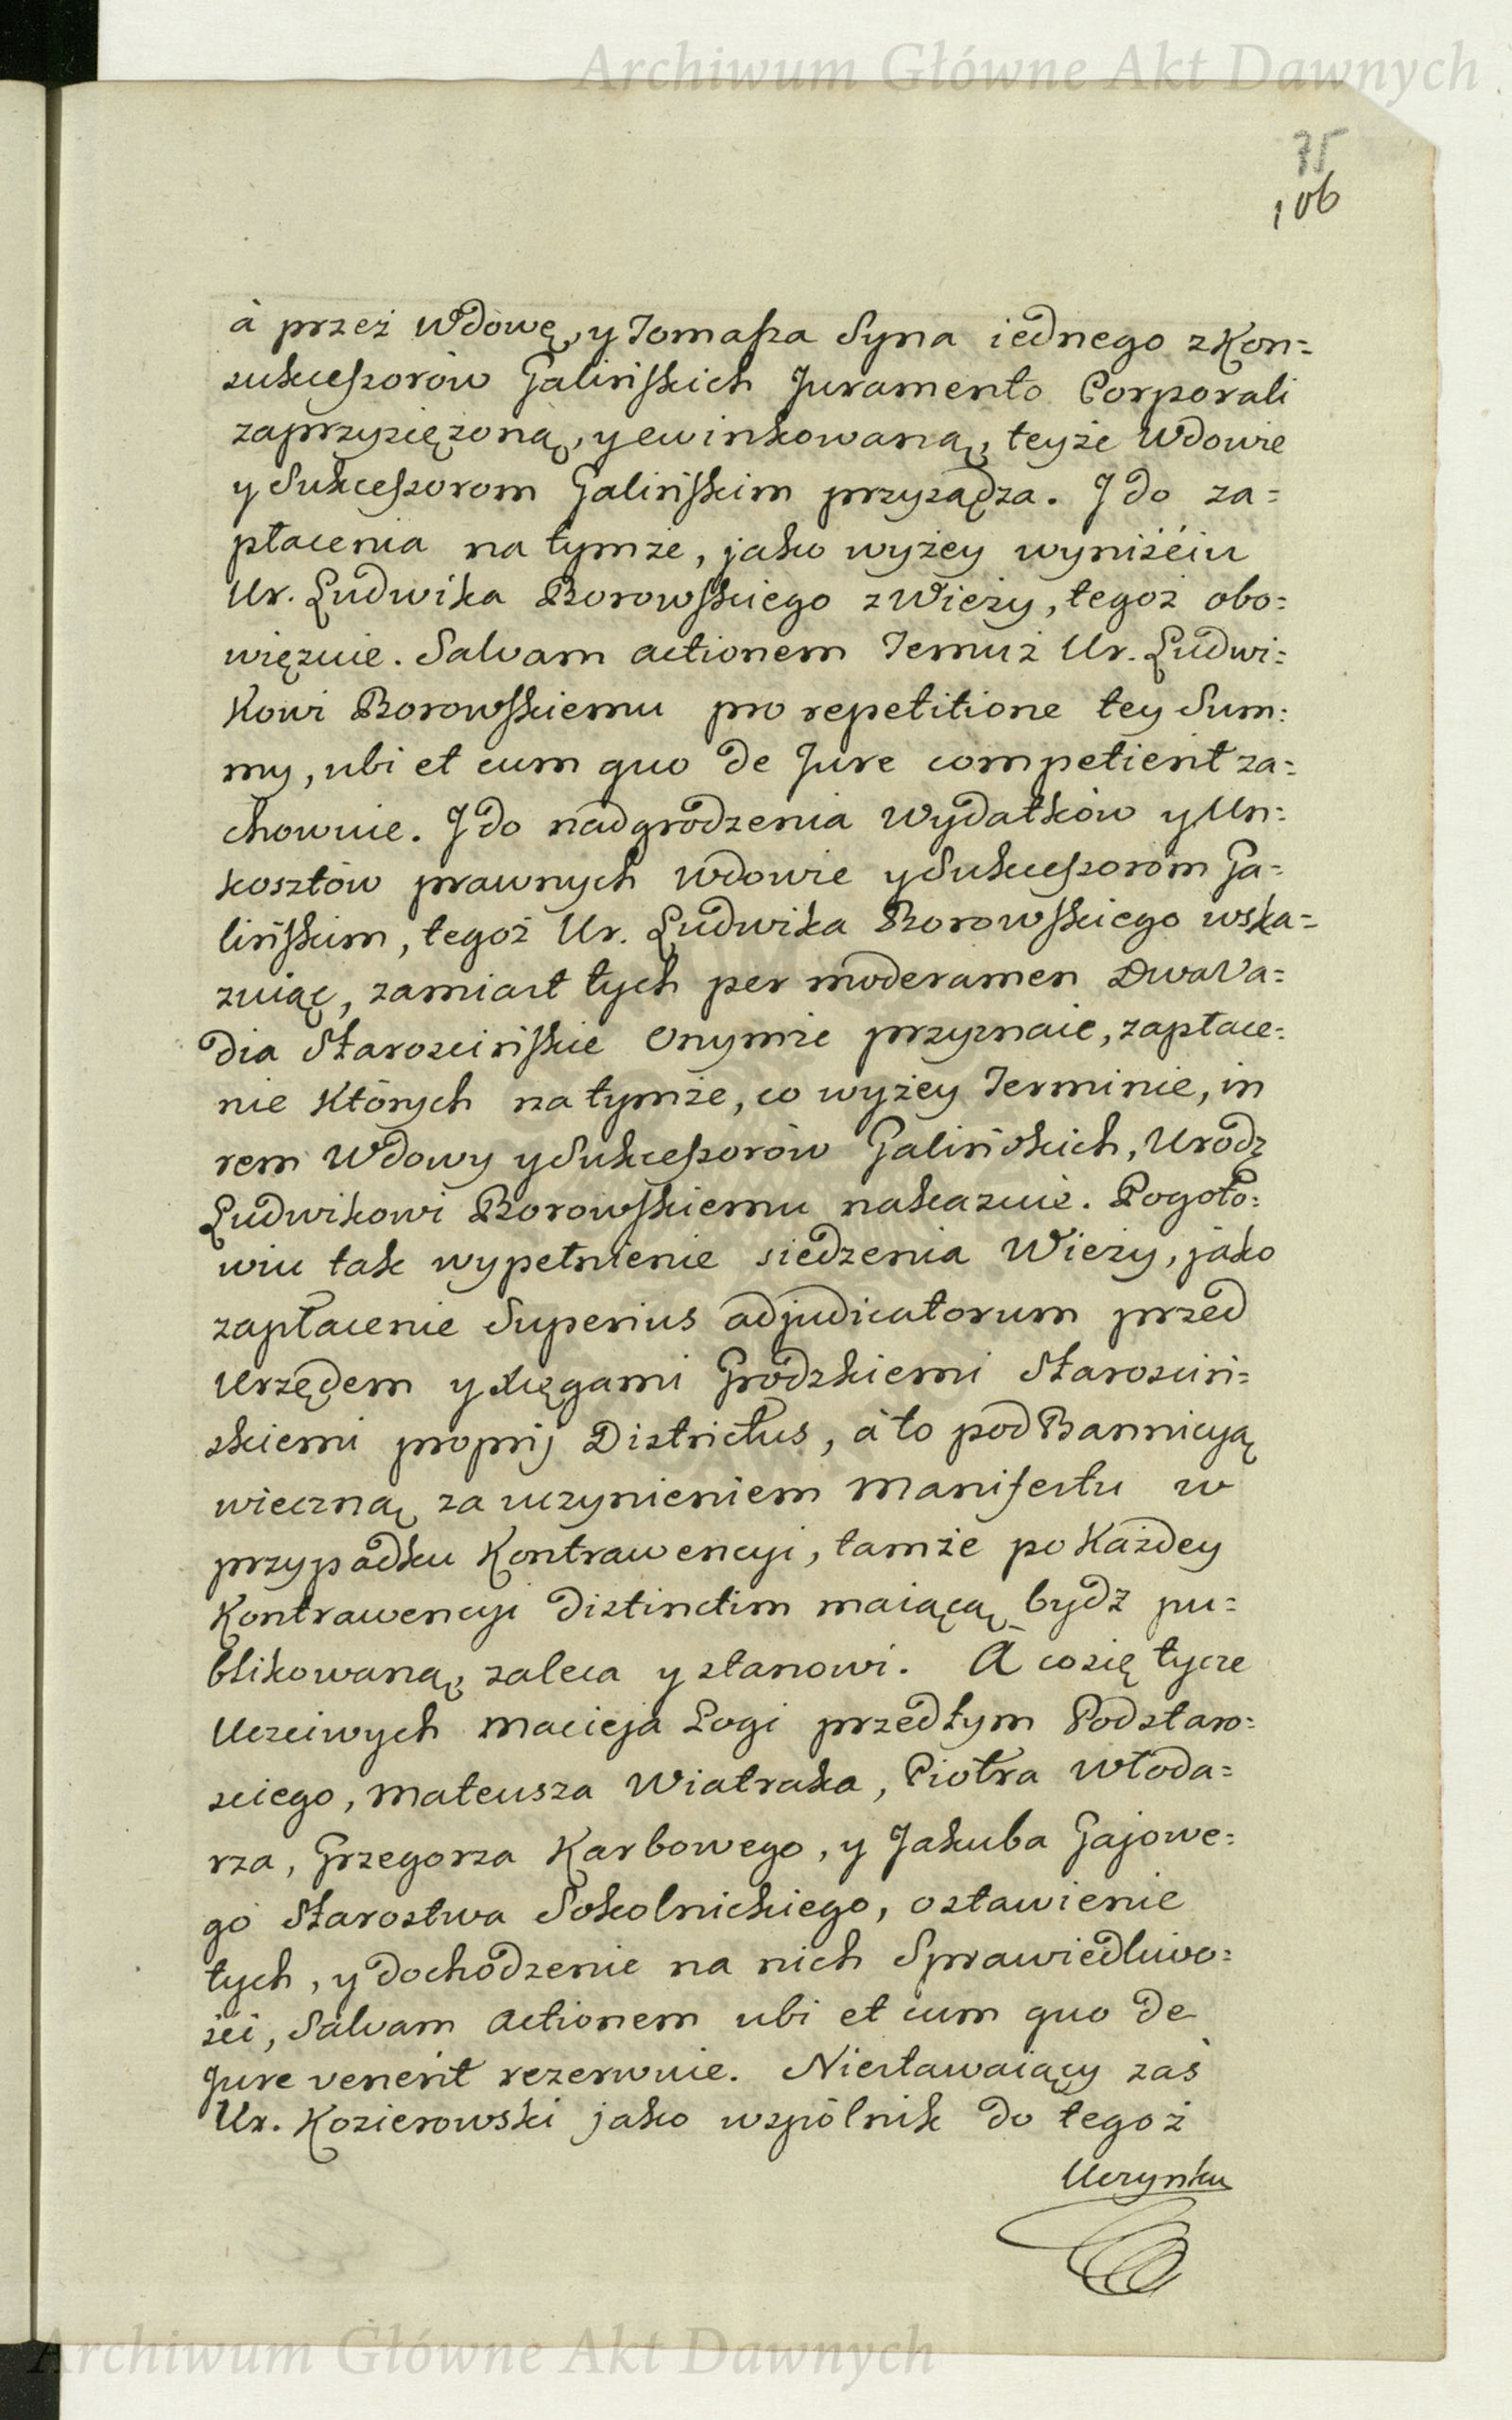 Archiwum Główne Akt Dawnych
75
106
à przez Wdowę, y Tomaſza Syna iednego z Kon=
sukceſsorów Galińſkich Juramento Corporali
zaprzysięzoną, y ewinkowaną, teyże Wdowie
y Sukceſsorom Galińſkim przysądza. J do za=
płacenia na tymże, jako wyżey wyniściu
Ur. Ludwika Borowſkiego z Wieży, tegoż obo=
więzuie. Salvam actionem Temuż Ur. Ludwi=
kowi Borowſkiemu pro repetitione tey Sum=
my, ubi et cum quo de Jure competierit za=
chowuie. J do nadgrodzenia Wydatków y Un=
kosztów prawnych Wdowie y Sukceſsorom Ga=
lińſkim, tegoż Ur. Ludwika Borowſkiego wska=
zuiąc, zamiast tych per moderamen Dwa Va=
dia Starościńſkie Onymże przyznaie, zapłace=
nie Których na tymże, co wyżey Terminie, in
rem Wdowy y Sukceſsorów Galińskich, Urodz
Ludwikowi Borowſkiemu nakazuie. Pogoto=
wiu tak wypełnienie siedzenia Wieży, jako
zapłacenie Superius adjudicatorum przed
Urzędem y Xięgami Grodzkiemi Starościń=
skiemi proprij Districtus, à to pod Bannicyą
wieczną za uczynieniem Manifestu w
przypadku Kontrawencyi, tamże po Każdey
Kontrawencyi distinctim maiącą bydź pu=
blikowaną, zaleca y stanowi. A co się tycze
Uczciwych Macieja Łogi przedtym Podstaro=
sciego, Mateusza Wiatraka, Piotra Włoda=
rza, Grzegorza Karbowego, y Jakuba Gajowe=
go Starostwa Sokolnickiego, ostawienie
tych, y dochodzenie na nich Sprawiedliwo=
ści, Salvam Actionem ubi et cum quo de
Jure venerit rezerwuie. Niestawaiący zaś
Ur. Kozierowski jako wspólnik do tegoż
Uczynku
Archiwum Główne Akt Dawnych